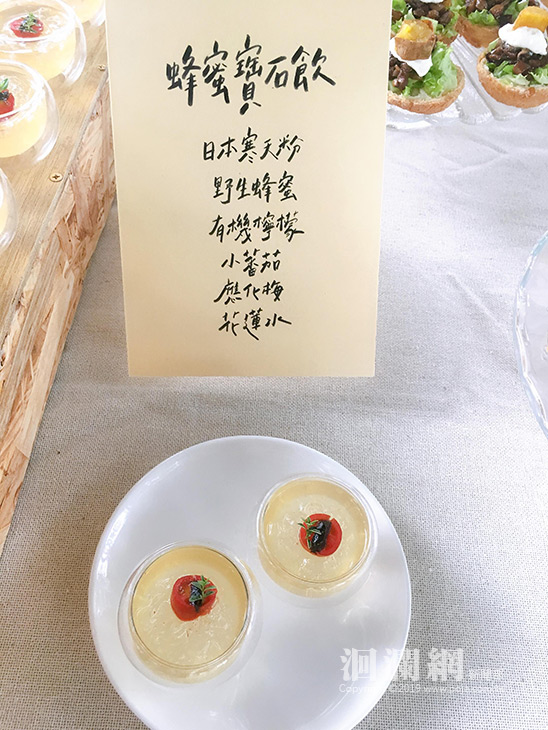 蜂蜜寶石飲
日本寒天粉
野生蜂蜜
有機檸檬
小蕃茄
應化梅
花蓮水
洄瀾網